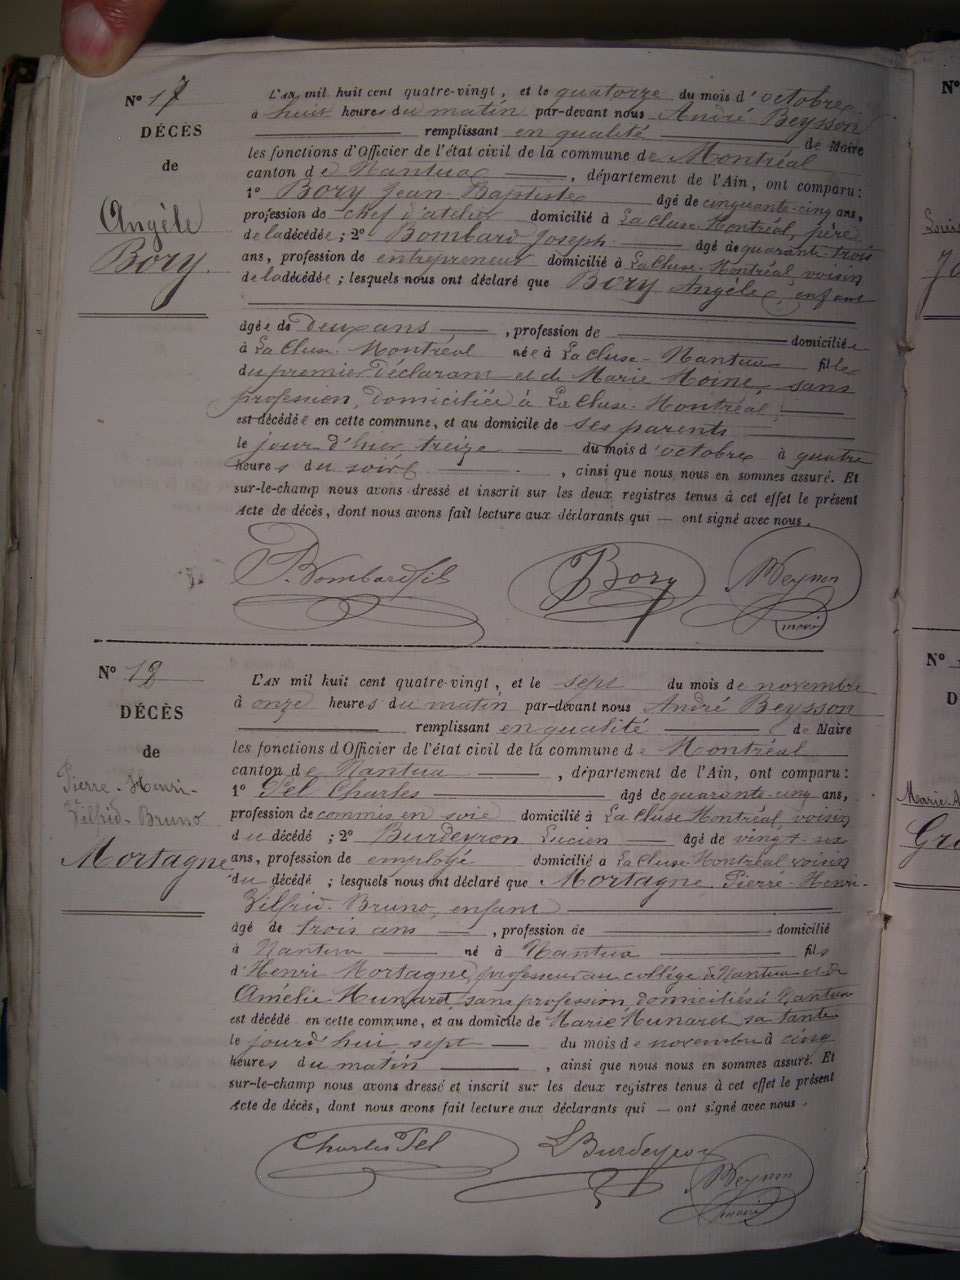 Nº 17
DÉCÈS
de
Angèle
Bory
L'AN mil huit cent quatre-vingt, et le quatorze du mois d'octobre
à huit heures du matin par-devant nous André Beysson
remplissant en qualité de Maire
les fonctions d'Officier de l'état civil de la commune de Montréal
canton de Nantua, département de l'Ain, ont comparu:
1º Bory Jean-Baptiste âgé de cinquante-cinq ans,
profession de chef d'atelier domicilié à La Cluse-Montréal, père
de la décédée; 2º Bombard Joseph âgé de quarante-trois
ans, profession de entrepreneur domicilié à La Cluse-Montréal, voisin
de la décédée; lesquels nous ont déclaré que Bory Angèle, enfant
âgée de deux ans, profession de domiciliée
à La Cluse-Montréal née à La Cluse-Nantua fille
du premier déclarant et de Marie Moine, sans
profession, domiciliée à La Cluse-Montréal,
est décédée en cette commune, et au domicile de ses parents
le jour d'hier treize du mois d'octobre à quatre
heures du soir, ainsi que nous nous en sommes assuré. Et
sur-le-champ nous avons dressé et inscrit sur les deux registres tenus à cet effet le présent
Acte de décès, dont nous avons fait lecture aux déclarants qui — ont signé avec nous.
Bombard fils Bory Beysson
maire
Nº 18
DÉCÈS
de
Pierre-Henri-
Vilfrid-Bruno
Mortagne
L'AN mil huit cent quatre-vingt, et le sept du mois de novembre
à onze heures du matin par-devant nous André Beysson
remplissant en qualité de Maire
les fonctions d'Officier de l'état civil de la commune de Montréal
canton de Nantua, département de l'Ain, ont comparu:
1º Pel Charles âgé de quarante-cinq ans,
profession de commis en soie domicilié à La Cluse Montréal, voisin
du décédé; 2º Burdeyron Lucien âgé de vingt-six
ans, profession de employé domicilié à La Cluse Montréal voisin
du décédé; lesquels nous ont déclaré que Mortagne Pierre-Henri-
Vilfrid-Bruno, enfant
âgé de trois ans, profession de domicilié
à Nantua né à Nantua fils
d'Henri Mortagne, professeur au collège de Nantua et de
Amélie Hunaret, sans profession, domiciliés à Nantua
est décédé en cette commune, et au domicile de Marie Hunaret, sa tante
le jourd'hui sept du mois de novembre à cinq
heures du matin, ainsi que nous nous en sommes assuré. Et
sur-le-champ nous avons dressé et inscrit sur les deux registres tenus à cet effet le présent
Acte de décès, dont nous avons fait lecture aux déclarants qui — ont signé avec nous.
Charles Pel L Burdeyron
Beysson
maire
Nº
Louis
Nº
D
Marie-A
Gro